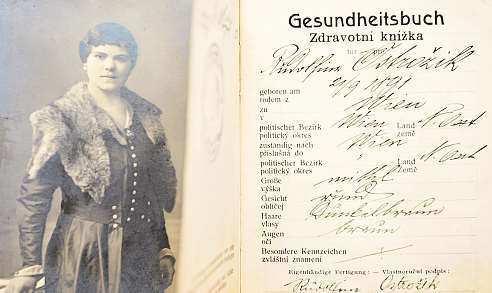 Gesundheitsbuch
Zdravotní knížka
für pro
Rudolfine Ostrožik
geboren am 29/9 1891
rodem z
zu Wien
v
politischer Bezirk Wien Land N. Öst
politický okres Země
zuständig nach Wien
příslušná do
politischer Bezirk " Land N. Öst
politický okres Země
Große mittel
výška
Gesicht rund
obličej
Haare Dunkelbraun
vlasy
Augen braun
oči
Besondere Kennzeichen
zvláštní znamení
Eigenhändige Fertigung: — Vlastnoruční podpis:
Rudolfine Ostrožik